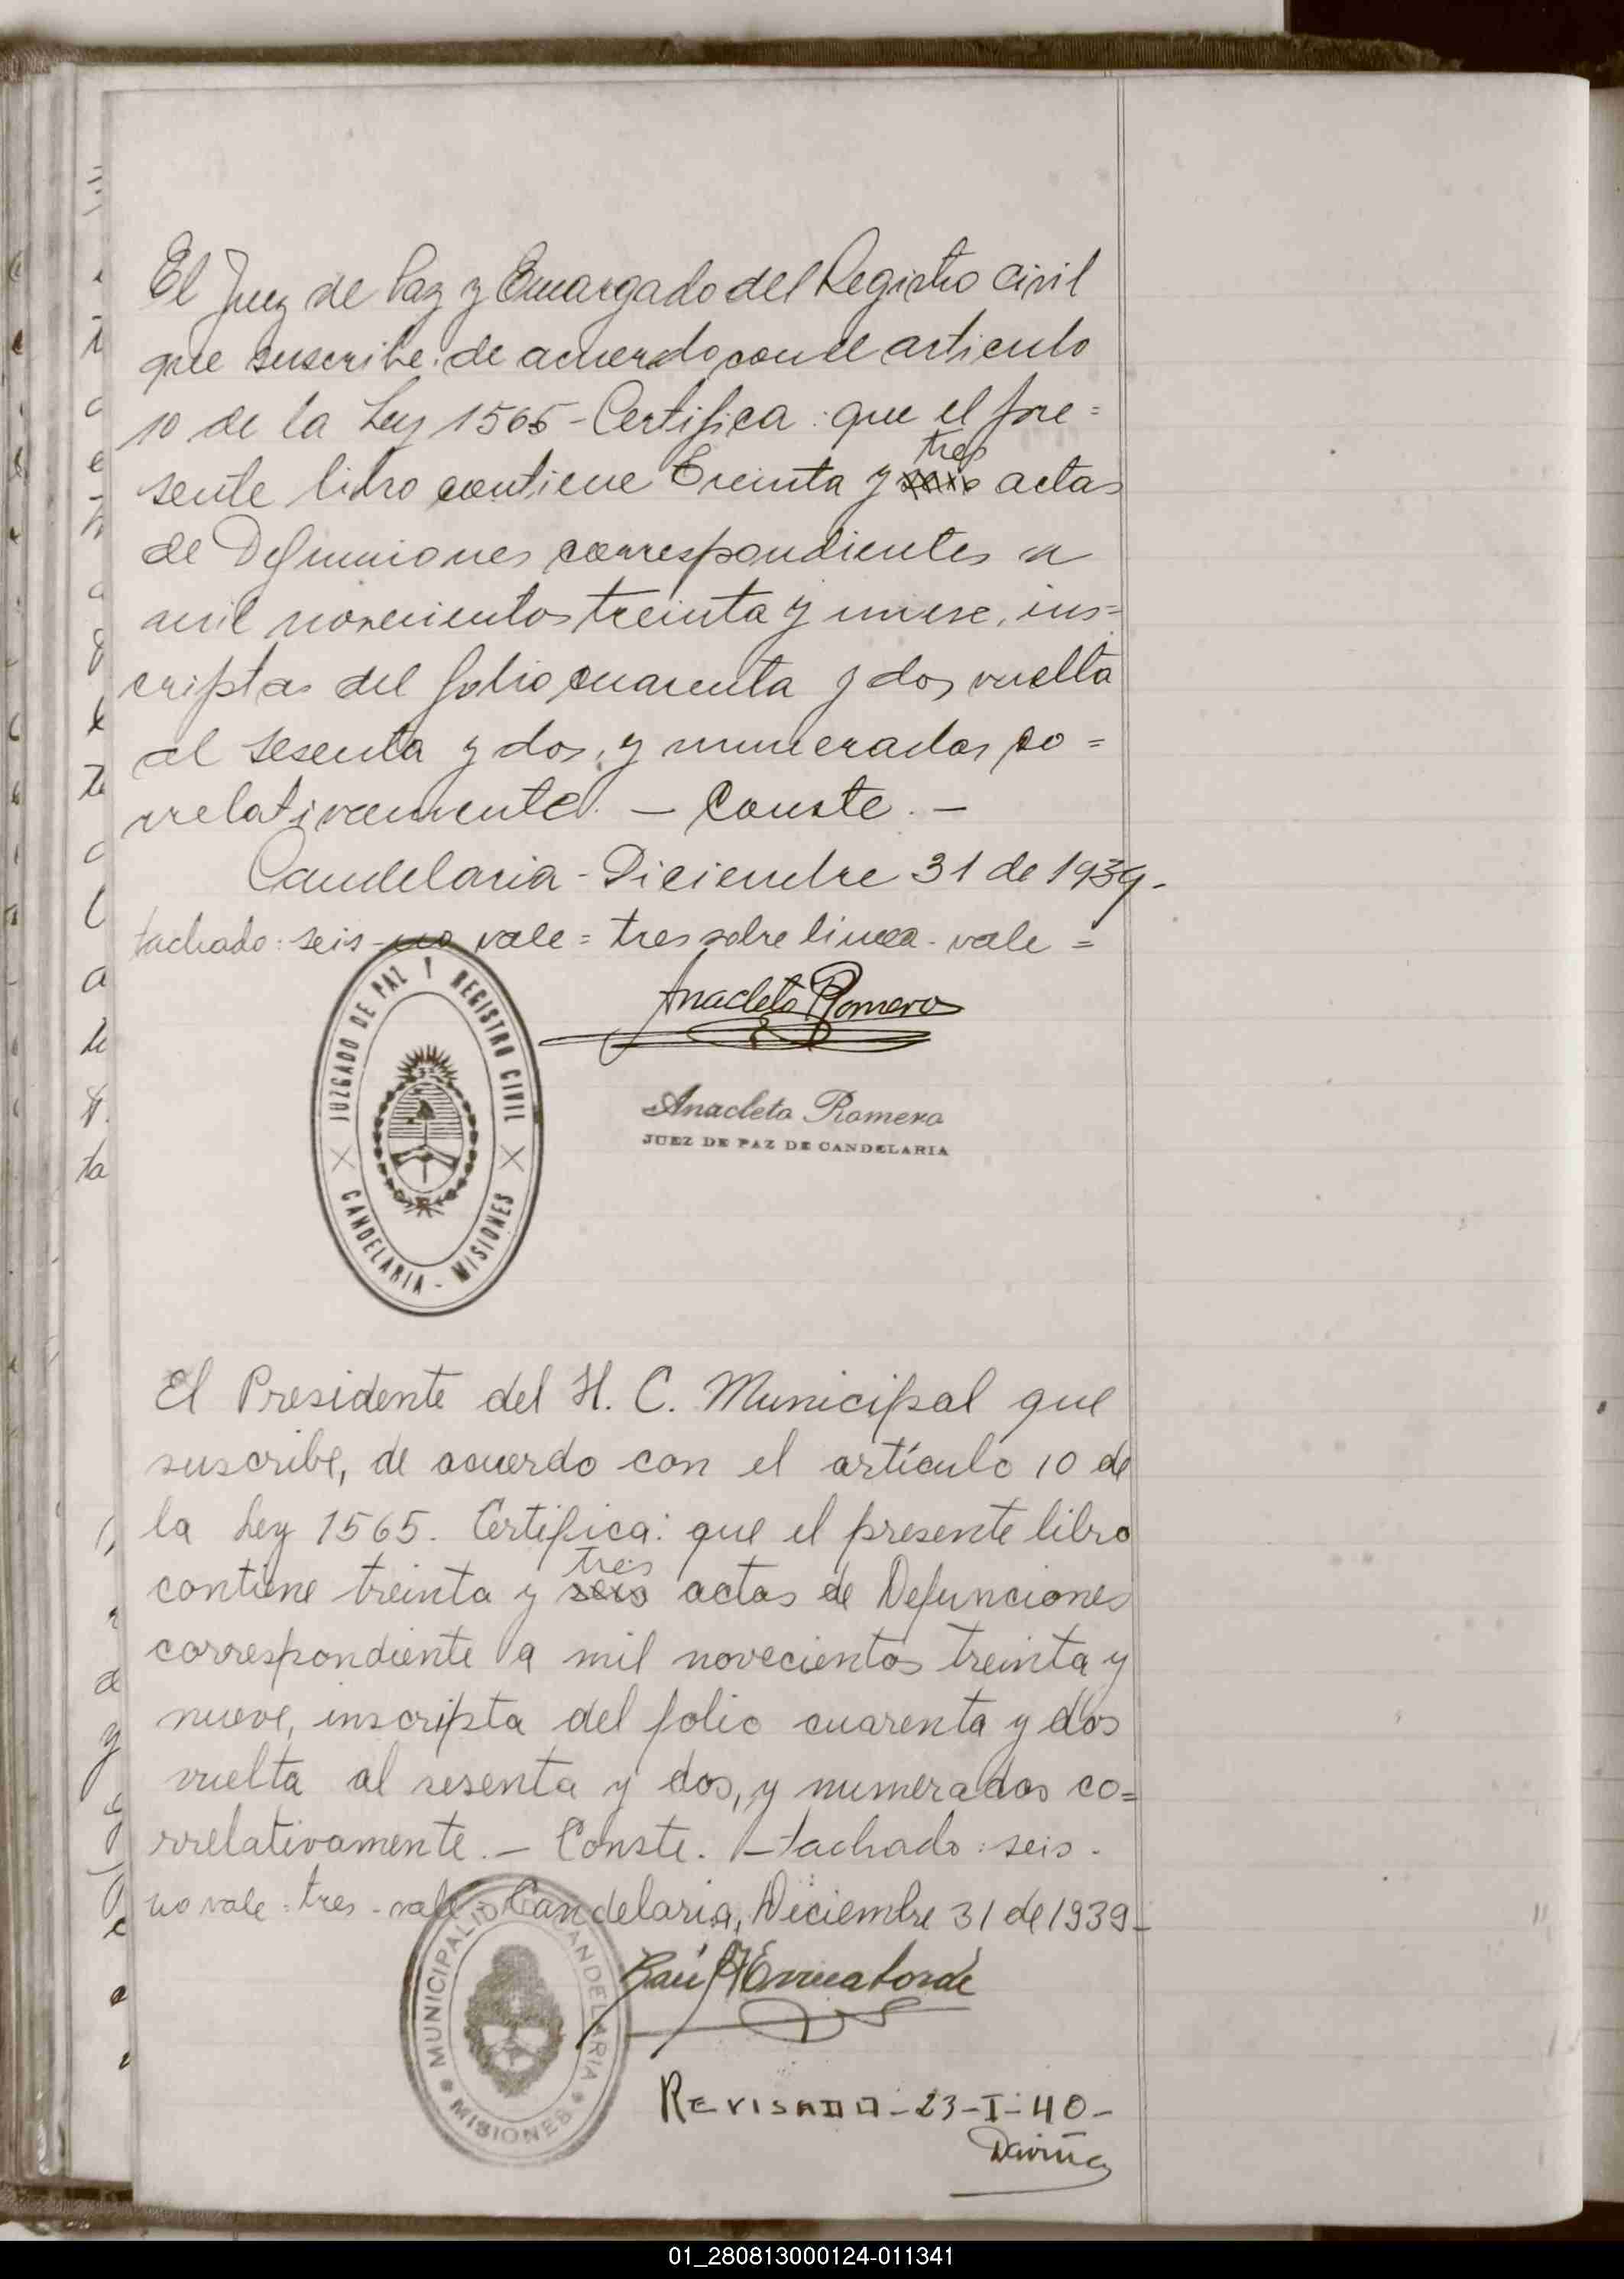 El Juez de Paz y Encargado del Registro Civil
que suscribe: de acuerdo con el articulo
10 de la Ley 1565 - Certifica: que el pre=
tres
sente libro contiene Treinta y seis actas
de Defunciones correspondientes a
mil novecientos treinta y nueve, ins=
criptas del folio cuarenta y dos vuelta
al sesenta y dos, y numeradas co=
rrelativamente. - Conste. -
Candelaria - Diciembre 31 de 1939.-
tachado: seis - no vale = tres sobre linea - vale =
Anacleto Romero
JUZGADO DE PAZ Y REGISTRO CIVIL
CANDELARIA - MISIONES
Anacleto Romero
JUEZ DE PAZ DE CANDELARIA
El Presidente del H. C. Municipal que
suscribe, de acuerdo con el artículo 10 de
la Ley 1565. Certifica: que el presente libro
tres
contiene treinta y seis actas de Defunciones
correspondiente a mil novecientos treinta y
nueve, inscripta del folio cuarenta y dos
vuelta al sesenta y dos, y numerados co=
rrelativamente. - Conste. - tachado: seis -
no vale = tres - vale - Candelaria, Diciembre 31 de 1939-
MUNICIPALIDAD CANDELARIA
MISIONES
REVISADO - 23 - I - 40 -
01_280813000124-011341